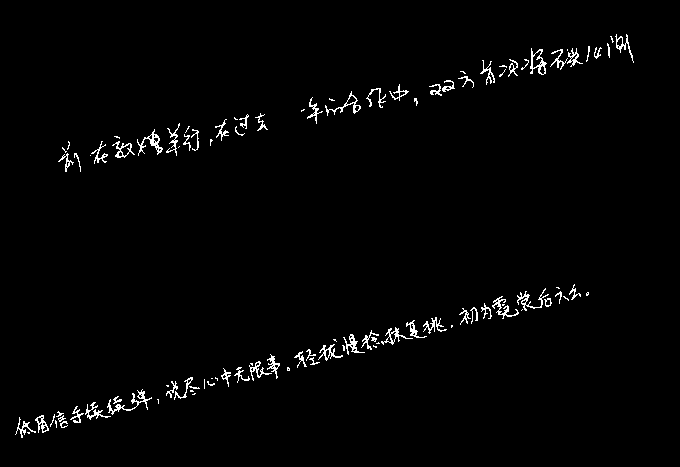 前在敦煌举行,在过去 年的合作中,双方首次将石窟休闲
低眉信手续续弹,说尽心中无限事。轻拢慢捻抹复挑,初为霓裳后六幺。